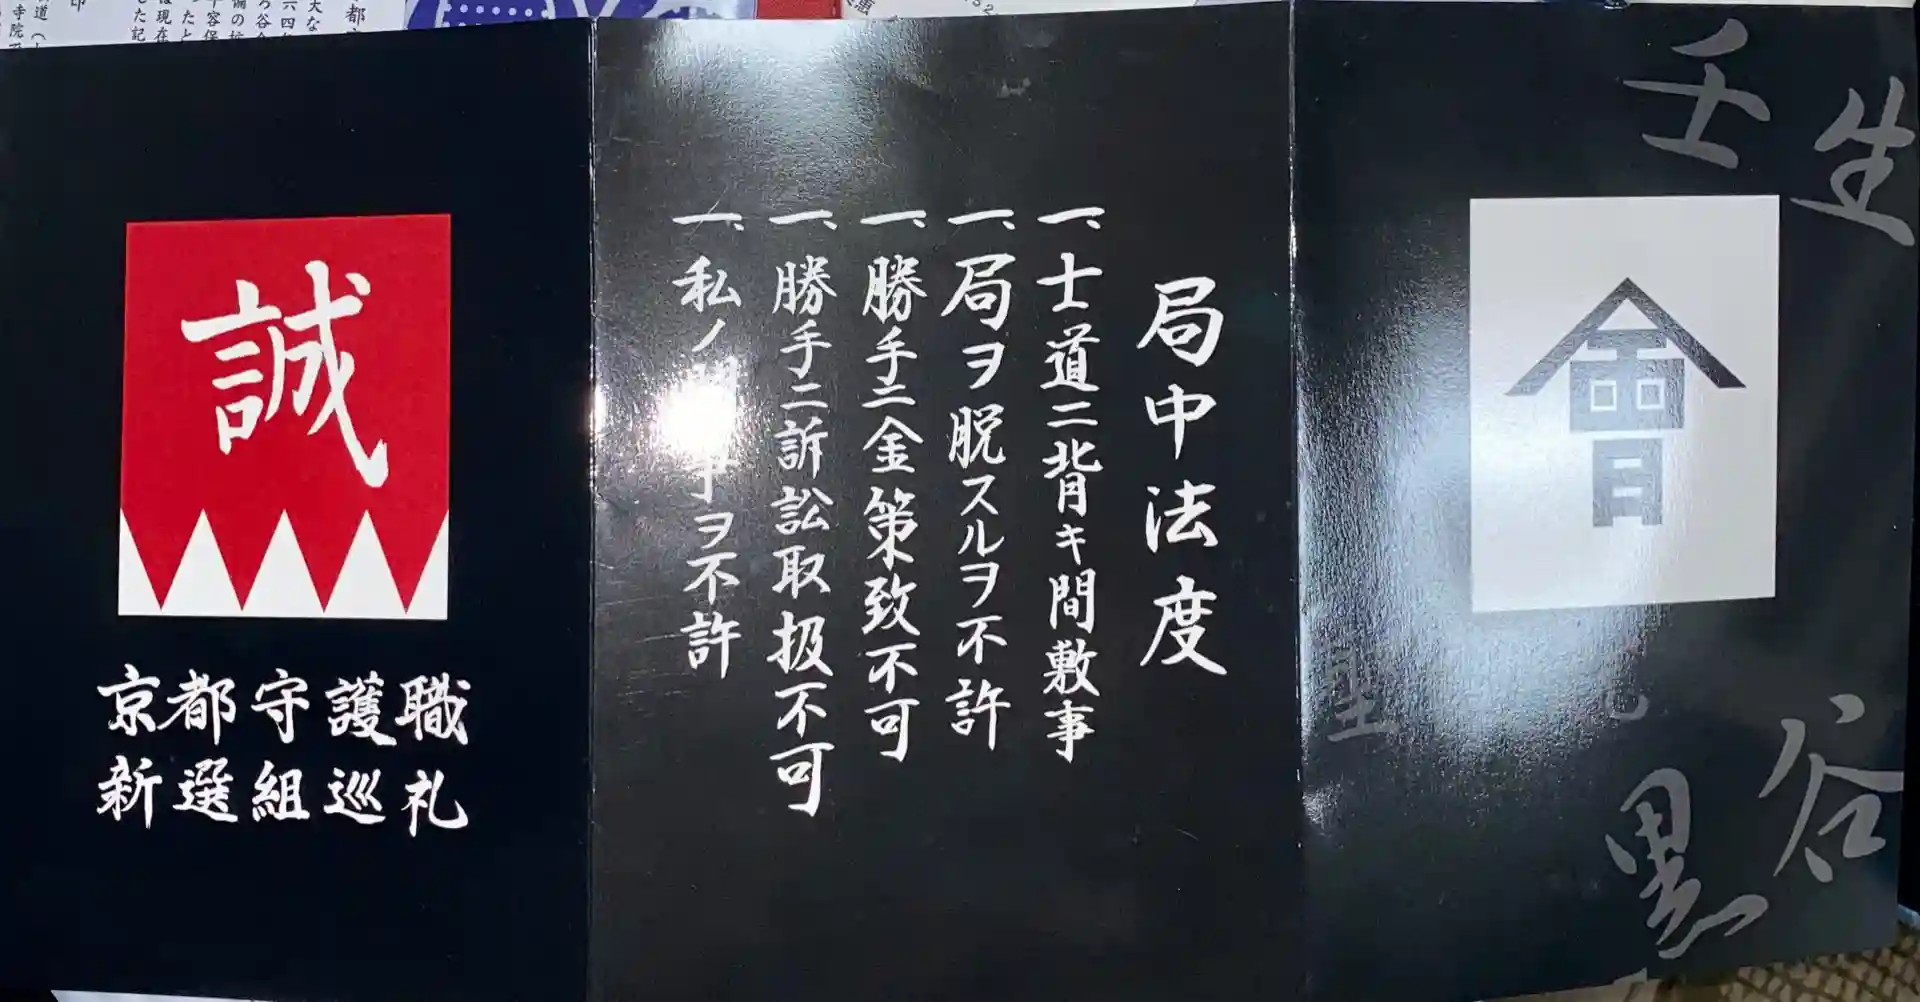 誠
京都守護職
新選組巡礼
局中法度
一、士道ニ背キ間敷事
一、局ヲ脱スルヲ不許
一、勝手ニ金策致不可
一、勝手ニ訴訟取扱不可
一、私ノ闘争ヲ不許
會
壬生
黒谷